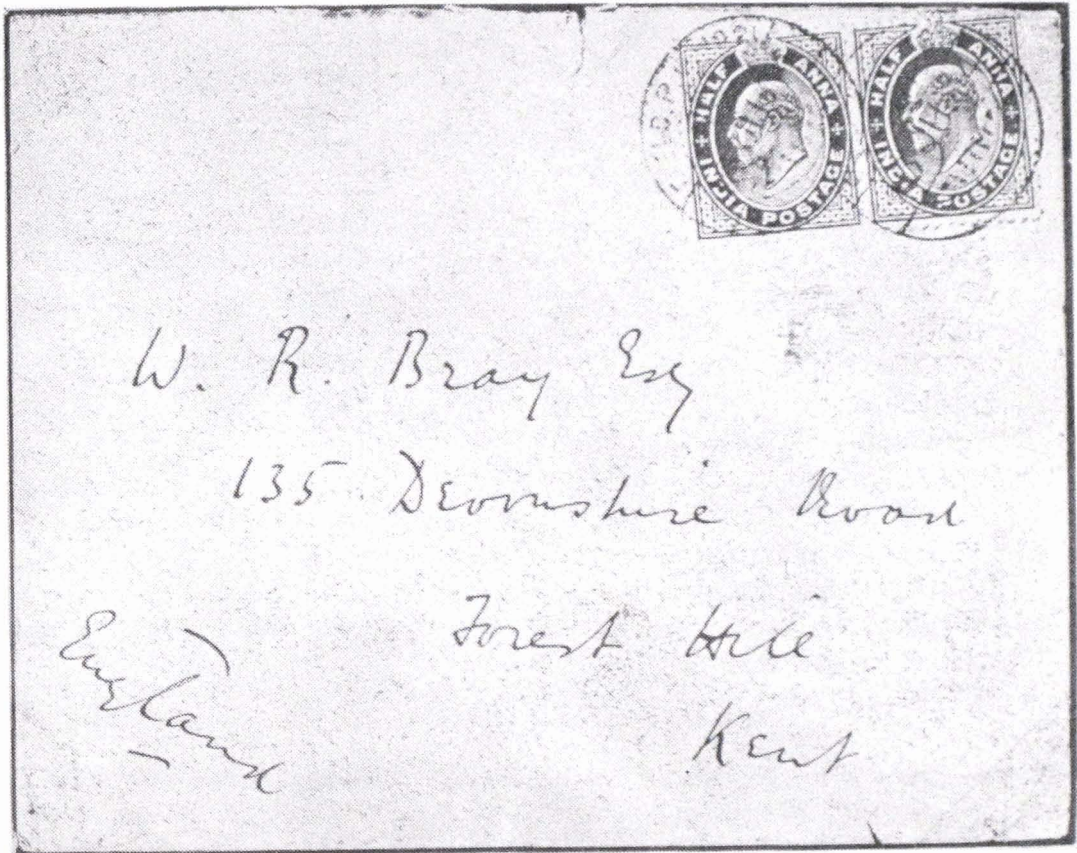 HALF ANNA
INDIA POSTAGE
HALF ANNA
INDIA POSTAGE
W. R. Bray Esq
135 Devonshire Road
Forest Hill
Kent
England